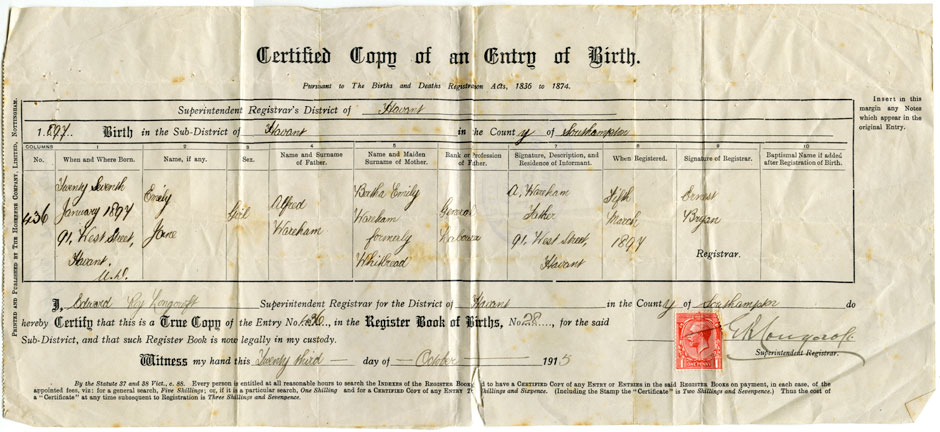 Certified Copy of an Entry of Birth.
Pursuant to The Births and Deaths Registration Acts, 1836 to 1874.
Superintendent Registrar's District of Havant
Insert in this
margin any Notes
which appear in the
original Entry.
1897. Birth in the Sub-District of Havant in the County of Southampton
COLUMNS 1 2 3 4 5 6 7 8 9 10
No. When and Where Born. Name, if any. Sex. Name and Surname of Father. Name and Maiden Surname of Mother. Rank or Profession of Father. Signature, Description, and Residence of Informant. When Registered. Signature of Registrar. Baptismal Name if added after Registration of Birth.
436
Twenty Seventh
January 1897
91, West Street,
Havant.
U.D.
Emily
Jane
Girl
Alfred
Wareham
Bertha Emily
Wareham
formerly
Whitbread
General
Labourer
A. Wareham
Father
91, West Street,
Havant
Fifth
March
1897
Ernest
Bryan
Registrar.
I, Edward Longcroft Superintendent Registrar for the District of Havant in the County of Southampton do
hereby Certify that this is a True Copy of the Entry No. 436, in the Register Book of Births, No. 28, for the said
Sub-District, and that such Register Book is now legally in my custody.
Witness my hand this Twenty third day of October 1915
Superintendent Registrar.
ONE PENNY
By the Statute 37 and 38 Vict., c. 88. Every person is entitled at all reasonable hours to search the Indexes of the Register Book, and to have a Certified Copy of any Entry or Entries in the said Register Books on payment, in each case, of the
appointed fees, viz: for a general search, Five Shillings; or, if it is a particular search, One Shilling and for a Certified Copy of any Entry Two Shillings and Sixpence. (Including the Stamp the "Certificate" is Two Shillings and Sevenpence.) Thus the cost of
a "Certificate" at any time subsequent to Registration is Three Shillings and Sevenpence.
Printed and Published by The Hobsens Company, Limited, Nottingham.